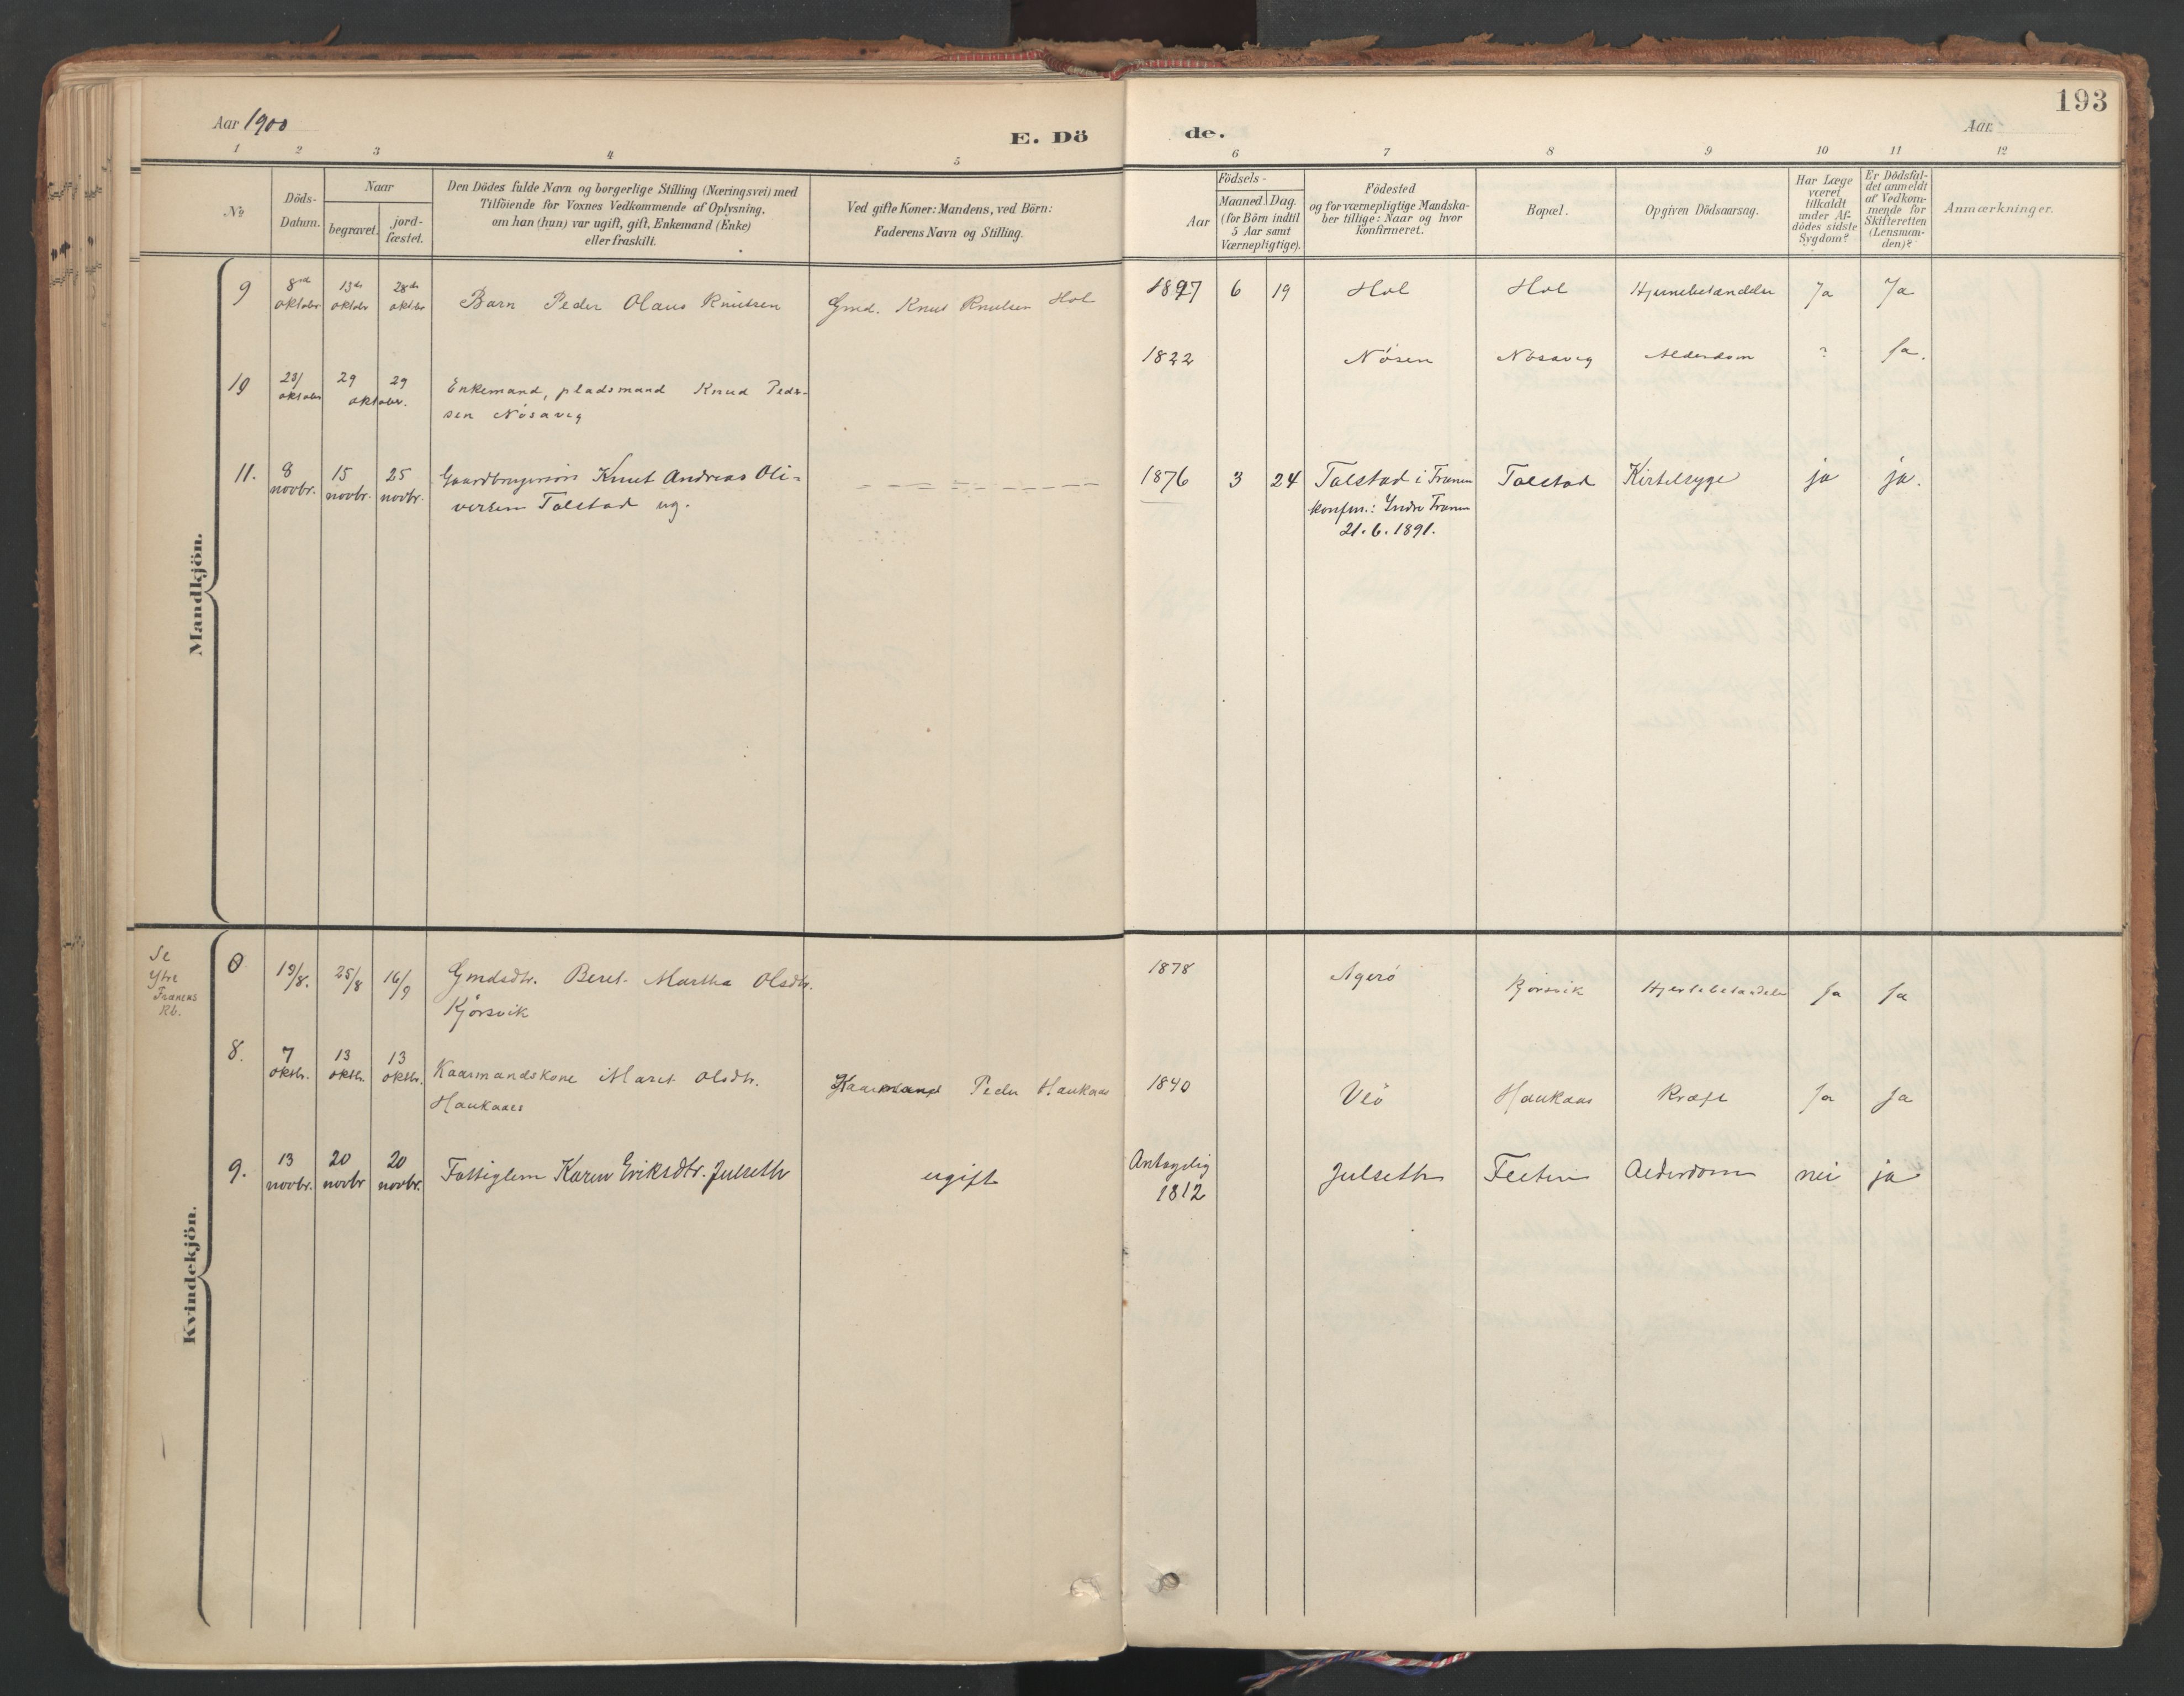 193
Aar 1900
E. Dö de.
Aar
1 2 3 4 5 6 7 8 9 10 11 12
No
Döds-
Datum.
Naar
begravet.
jord-
fæstet.
Den Dödes fulde Navn og borgerlige Stilling (Næringsvei) med
Tilföiende for Voxnes Vedkommende af Oplysning,
om han (hun) var ugift, gift, Enkemand (Enke)
eller fraskilt.
Ved gifte Koner: Mandens, ved Börn:
Faderens Navn og Stilling.
Födsels-
Aar
Maaned.
Dag.
(for Börn indtil
5 Aar samt
Værnepligtige).
Födested
og for værnepligtige Mandska-
ber tillige: Naar og hvor
konfirmeret.
Bopæl.
Opgiven Dödsaarsag.
Har Læge
været
tilkaldt
under Af-
dödes sidste
Sygdom?
Er Dödsfal-
det anmeldt
af Vedkom-
mende for
Skifteretten
(Lensman-
den)?
Anmærkninger.
Mandkjön.
9 8de oktober 13de oktober 28de oktober Barn Peder Olaus Knutsen Gmd. Knut Knutsen Hol 1897 6 19 Hol Hol Hjernebetændelse Ja Ja
10 23/ oktober 29 29 oktober. Enkemand, pladsmand Knud Peder-
sen Nösaveg 1822 Nösen Nösaveg Alderdom ? Ja.
11. 8 novbr. 15 novbr. 25 novbr. Gaardbrugersön Knut Andreas Oli-
versen Talstad ug. 1876 3 24 Talstad i Frænen Talstad Kirtelsyge ja ja.
konfm.: Indre Frænen
21.6.1891.
Kvindekjön.
Se
Ytre
Frænens
Kb.
0 19/8. 25/8 16/9 Gmdsdtr. Beret Martha Olsdtr.
Kjörsvik 1878 Agerö Kjörsvik Hjertebetændelse Ja Ja
8. 7 oktbr. 13 oktbr. 13 oktbr. Kaarmandskone Maret Olsdtr.
Haukaas Kaarmand Peder Haukaas 1840 Veö Haukaas Kræft Ja Ja
9. 13 novbr. 20 novbr 20 novbr. Fattiglem Karen Eriksdtr. Julseth ugift Antagelig
1812 Julseth Alderdom nei ja